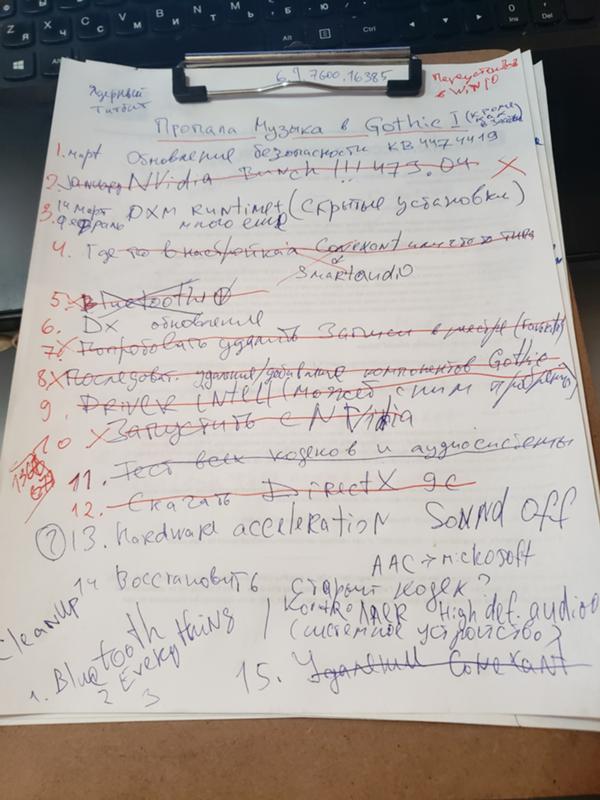 6.1 7600.16385
Ядерный
Титбит
Переустановка
в WIN 10
Пропала Музыка в Gothic I (кроме
как
1. март Обновление безопасности KB4474419
2. January NVidia Bunch !!! 473.04 X
3. 14 март DXM Runtime+ (Скрытые установки)
февраль много ещё
4. Где то в настройках Conexant или что то типа
SmartAudio
5. X Bluetooth
6. Dx обновление
7. X Попробовать удалить Записи в реестре
8. X Последоват. удаление/добавление компонентов Gothic
9. Driver Intel (может с ним проблемы)
10 X Запустить с NVidia
11. Тест всех кодеков и аудиосистемы
12. Скачать DirectX 9c
(?) 13. Hardware acceleration Sound OFF
AAC > mickosoft
14 Восстановить старый кодек?
/ Контроллер High def. audio
(системное устройство?)
Cleanup
1. Bluetooth
2 Everything
3
15. Удаление Conexant